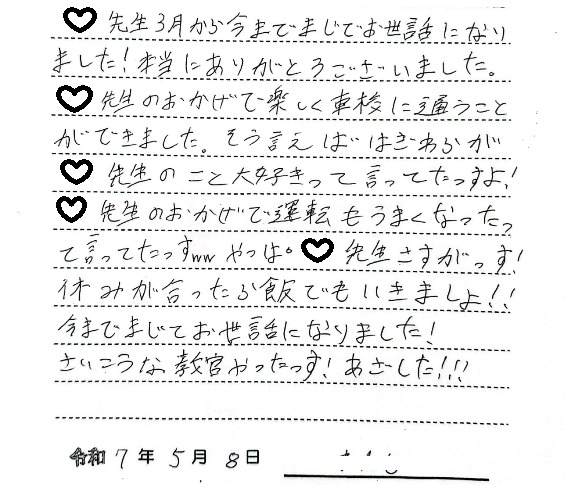 ♡先生3月から今までまじでお世話になり
ました!本当にありがとうございました。
♡先生のおかげで楽しく車校に通うこと
ができました。そう言えば はぎわらが
♡先生のこと大好きって言ってたっすよ!
♡先生のおかげで運転もうまくなったっ
て言ってたっすww やっぱ。♡先生さすがっす!
休みが合ったら飯でもいきましょ!!
今までまじでお世話になりました!
さいこうな教官やったっす!あざした!!!
令和7年5月8日